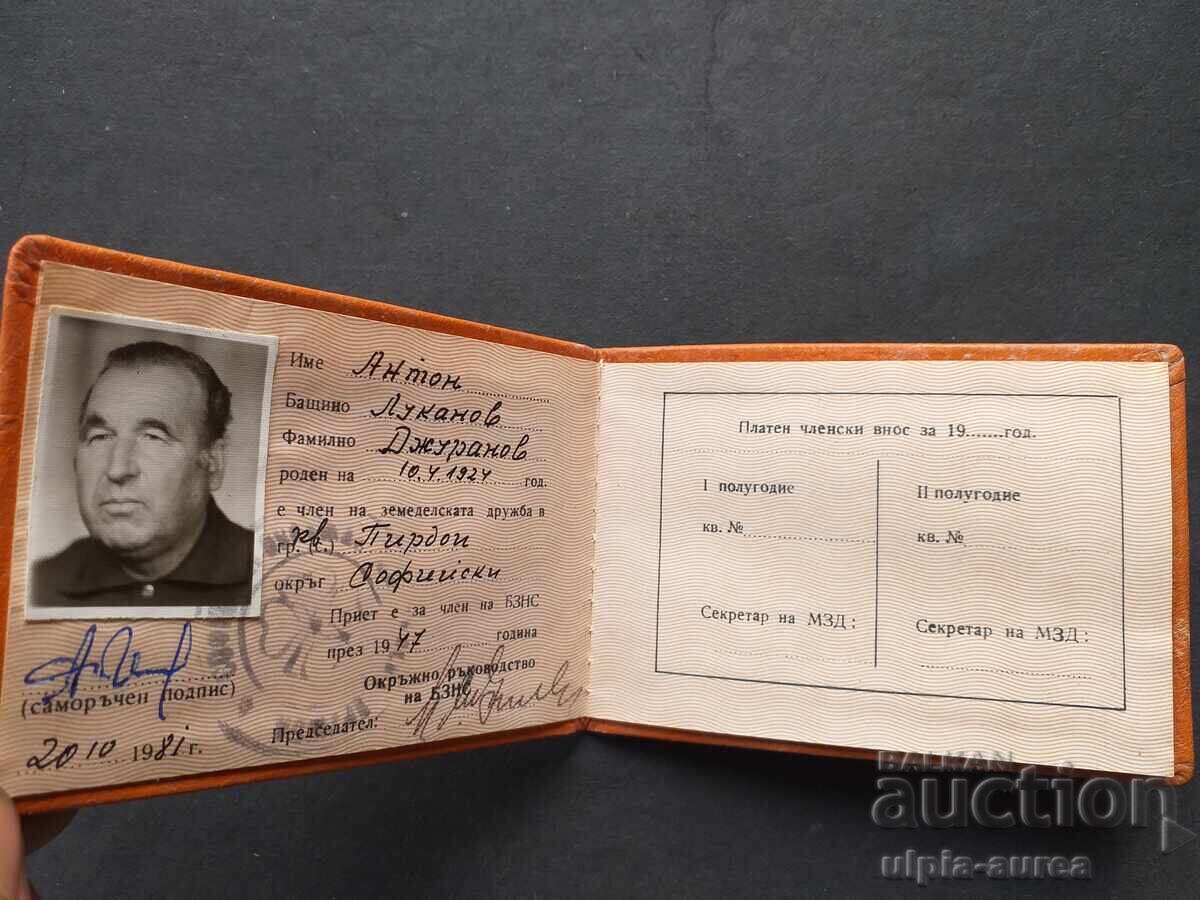 Име Антон
Бащино Луканов
Фамилно Джуранов
роден на 10.V.1924 год.
е член на земеделската дружба в
гр. (с.) кв. Пирдоп
окръг Софийски
Приет е за член на БЗНС
през 1947 година
Окръжно ръководство
на БЗНС
Председател:
(саморъчен подпис)
20 10 1981 г.
Платен членски внос за 19.......год.
I полугодие
кв. №
Секретар на МЗД:
II полугодие
кв. №
Секретар на МЗД:
BALKAN
auction
ulpia-aurea